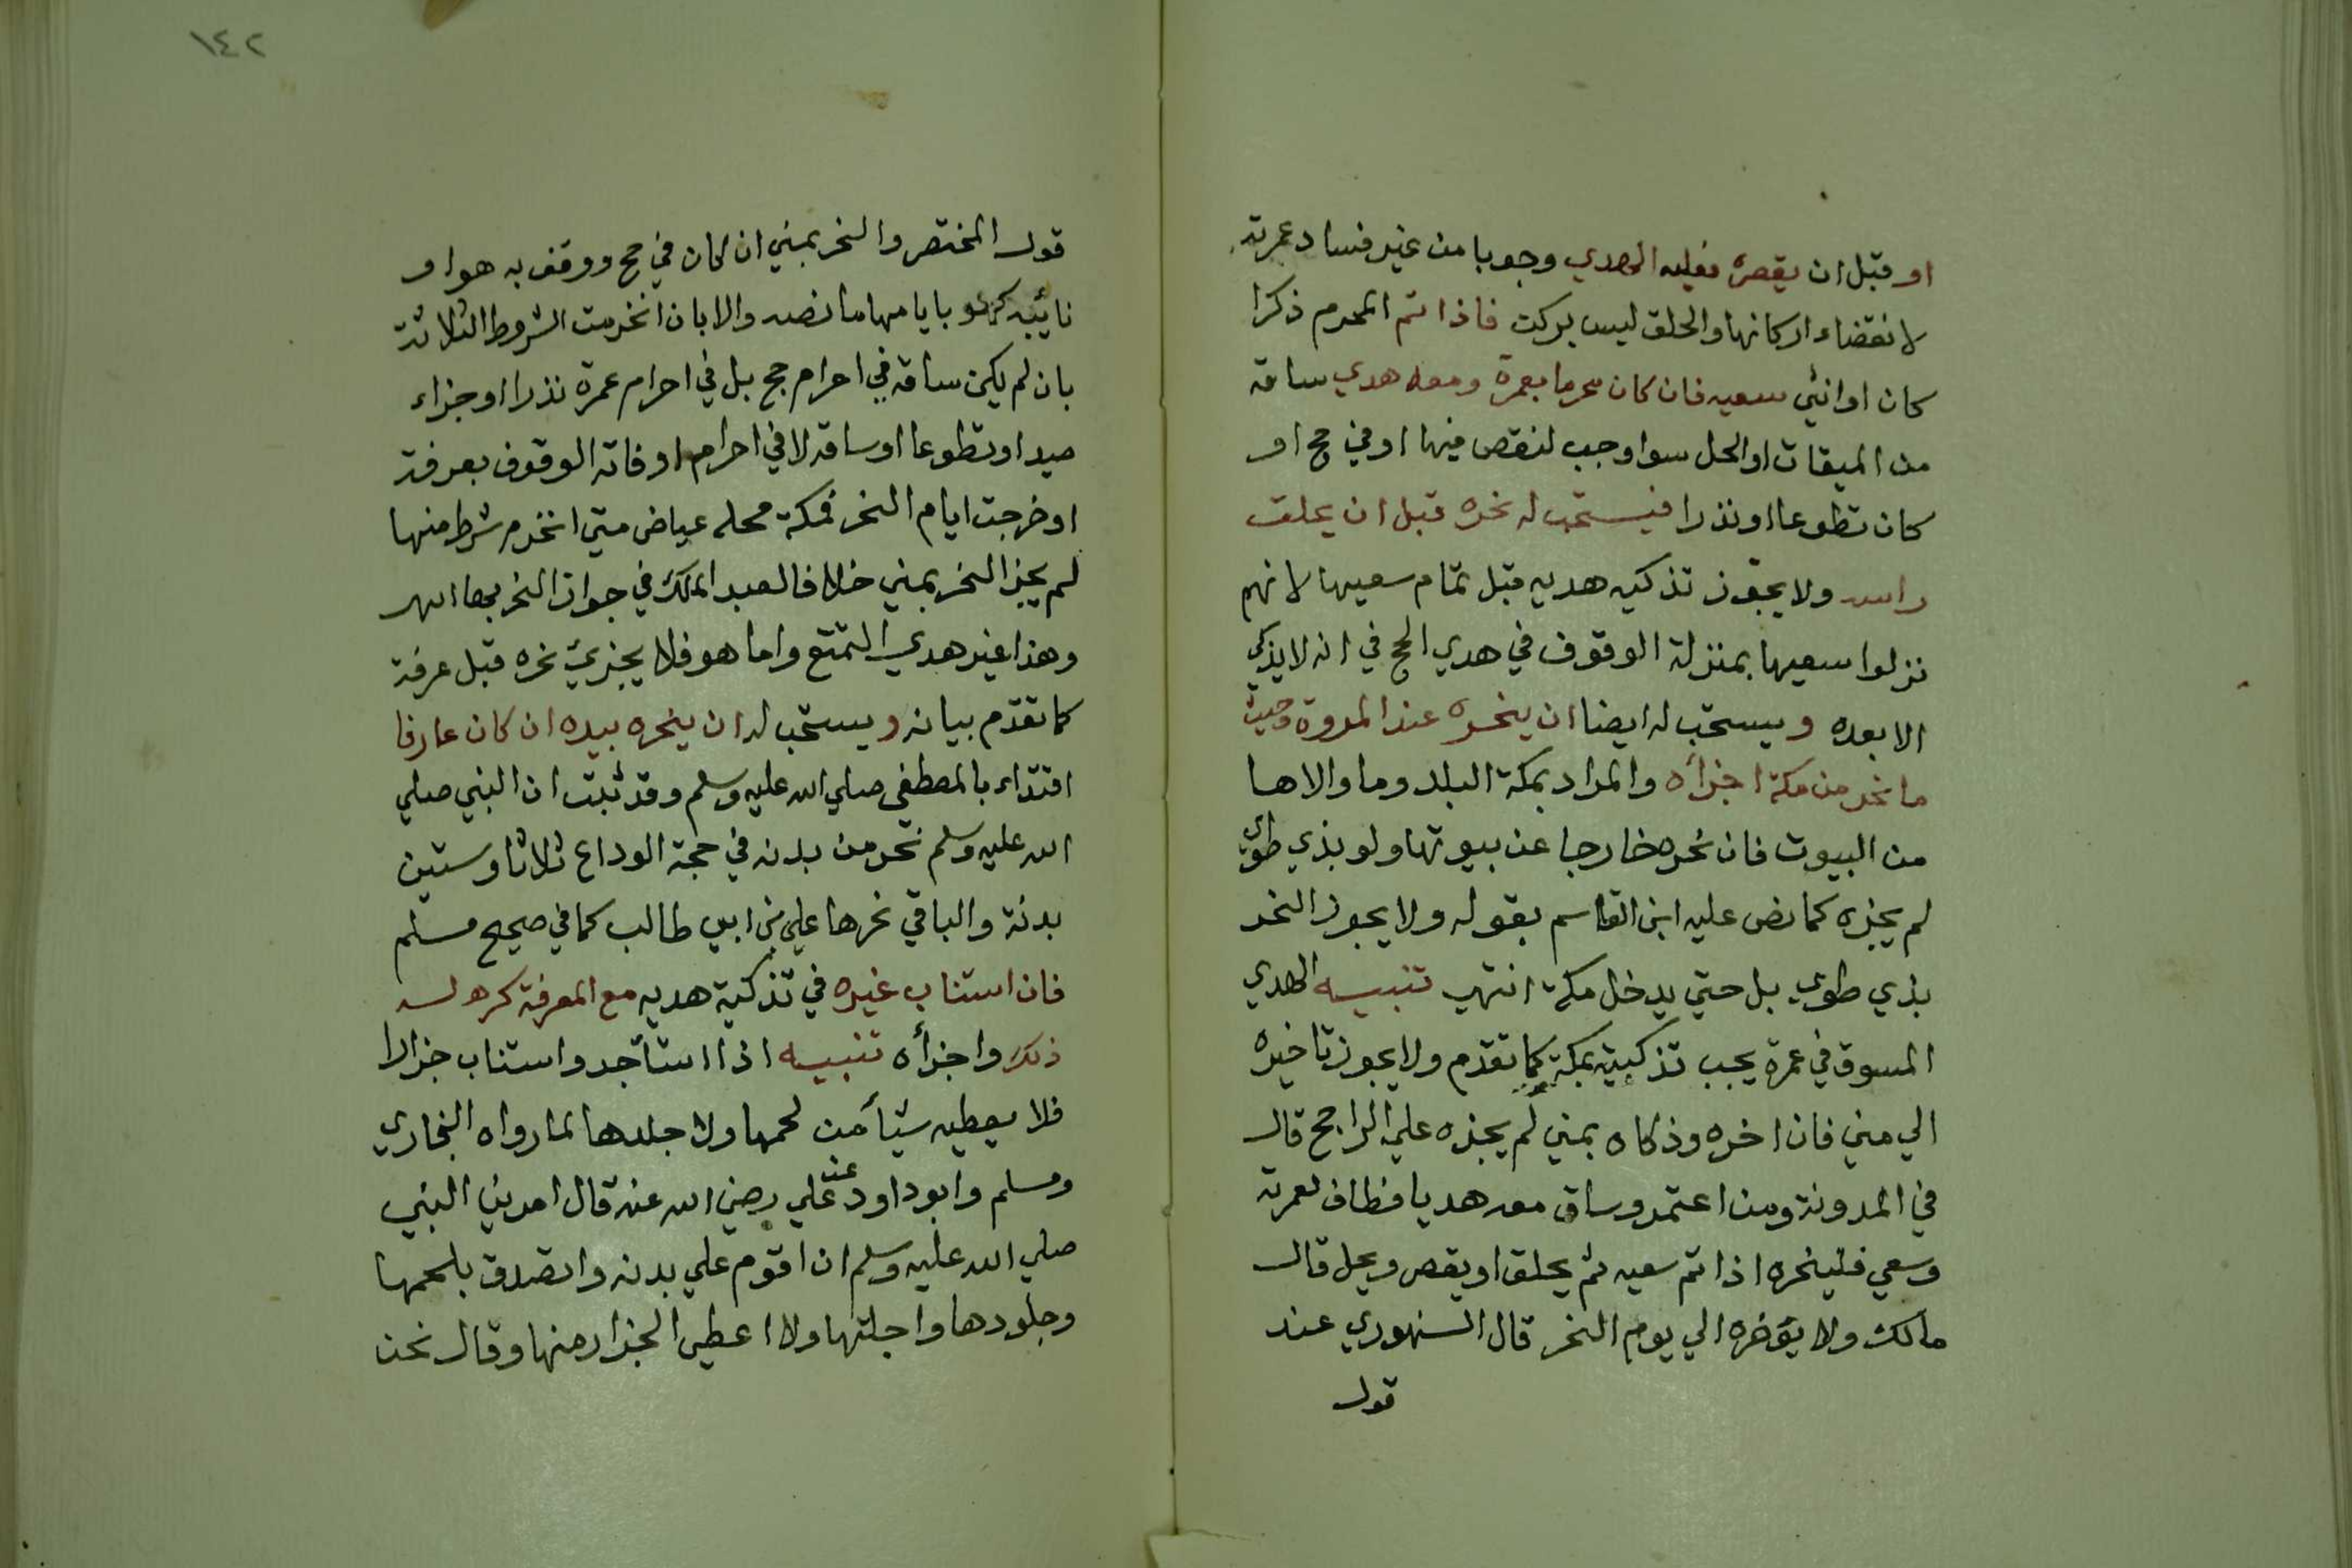 او قبل ان يقصره فعليه الهدي وجوبا من غير فساد عمرته
لانقضاء اركانها والحلق ليس بركن فاذا تم المحرم ذكرا
كان اوانثي سعيه فان كان محرما بعمرة ومعه هدي ساقه
من الميقات او الحل سوا وجب لنقص فيها او في حج او
كان تطوعا او نذرا فيستحب له نحره قبل ان يحلق
راسه ولا يجوز تذكيه هديه قبل تمام سعيها لانهم
نزلوا سعيها بمنزلة الوقوف في هدي الحج في انه لا يذكي
الا بعده ويستحب له ايضا ان ينحره عند المروة وحيث
ما نحر من مكة اجزأه والمراد بمكة البلد وما والاها
من البيوت فان نحره خارجا عن بيوتها ولو بذي طوي
لم يجزه كما نص عليه ابن القاسم بقوله ولا يجوز النحر
بذي طوي بل حتي يدخل مكة انتهي تنبيه الهدي
المسوق في عمرة يجب تذكيته بمكة كما تقدم ولا يجوز تاخيره
الي مني فان اخره وذكاه بمني لم يجزه علي الراجح قال
في المدونة ومن اعتمر وساق معه هديا فطاف لعمرته
وسعي فلينحره اذا تم سعيه ثم يحلق او يقصر ويحل قال
مالك ولا يؤخره الي يوم النحر قال السنهوري عند
قول
١٤٢
قول المختصر والنحر بمني ان كان في حج ووقف به هو او
نائبه كهو بايامها ما نصه والا بان انخرمت الشروط الثلاثة
بان لم يكن ساقه في احرام حج بل في احرام عمرة نذرا او جزاء
صيد او تطوعا او ساقه لا في احرام او فاته الوقوف بعرفة
او خرجت ايام النحر فمكة محله عياض متي انخرم شرط منها
لم يجز النحر بمني خلافا لعبد الملك في جواز النحر بها انتهي
وهذا غير هدي التمتع واما هو فلا يجزئ نحره قبل عرفة
كما تقدم بيانه ويستحب له ان ينحره بيده ان كان عارفا
اقتداء بالمصطفي صلي الله عليه وسلم وقد ثبت ان النبي صلي
الله عليه وسلم نحر من بدنه في حجة الوداع ثلاثا وستين
بدنة والباقي نحرها علي بن ابي طالب كما في صحيح مسلم
فان استناب غيره في تذكية هديه مع المعرفة كره له
ذلك واجزأه تنبيه اذا استأجر واستناب جزارا
فلا يعطيه شيأ من لحمها ولا جلدها لما رواه البخاري
ومسلم وابو داود عن علي رضي الله عنه قال امرني النبي
صلي الله عليه وسلم ان اقوم علي بدنه واتصدق بلحمها
وجلودها واجلتها ولا اعطي الجزار منها وقال نحن